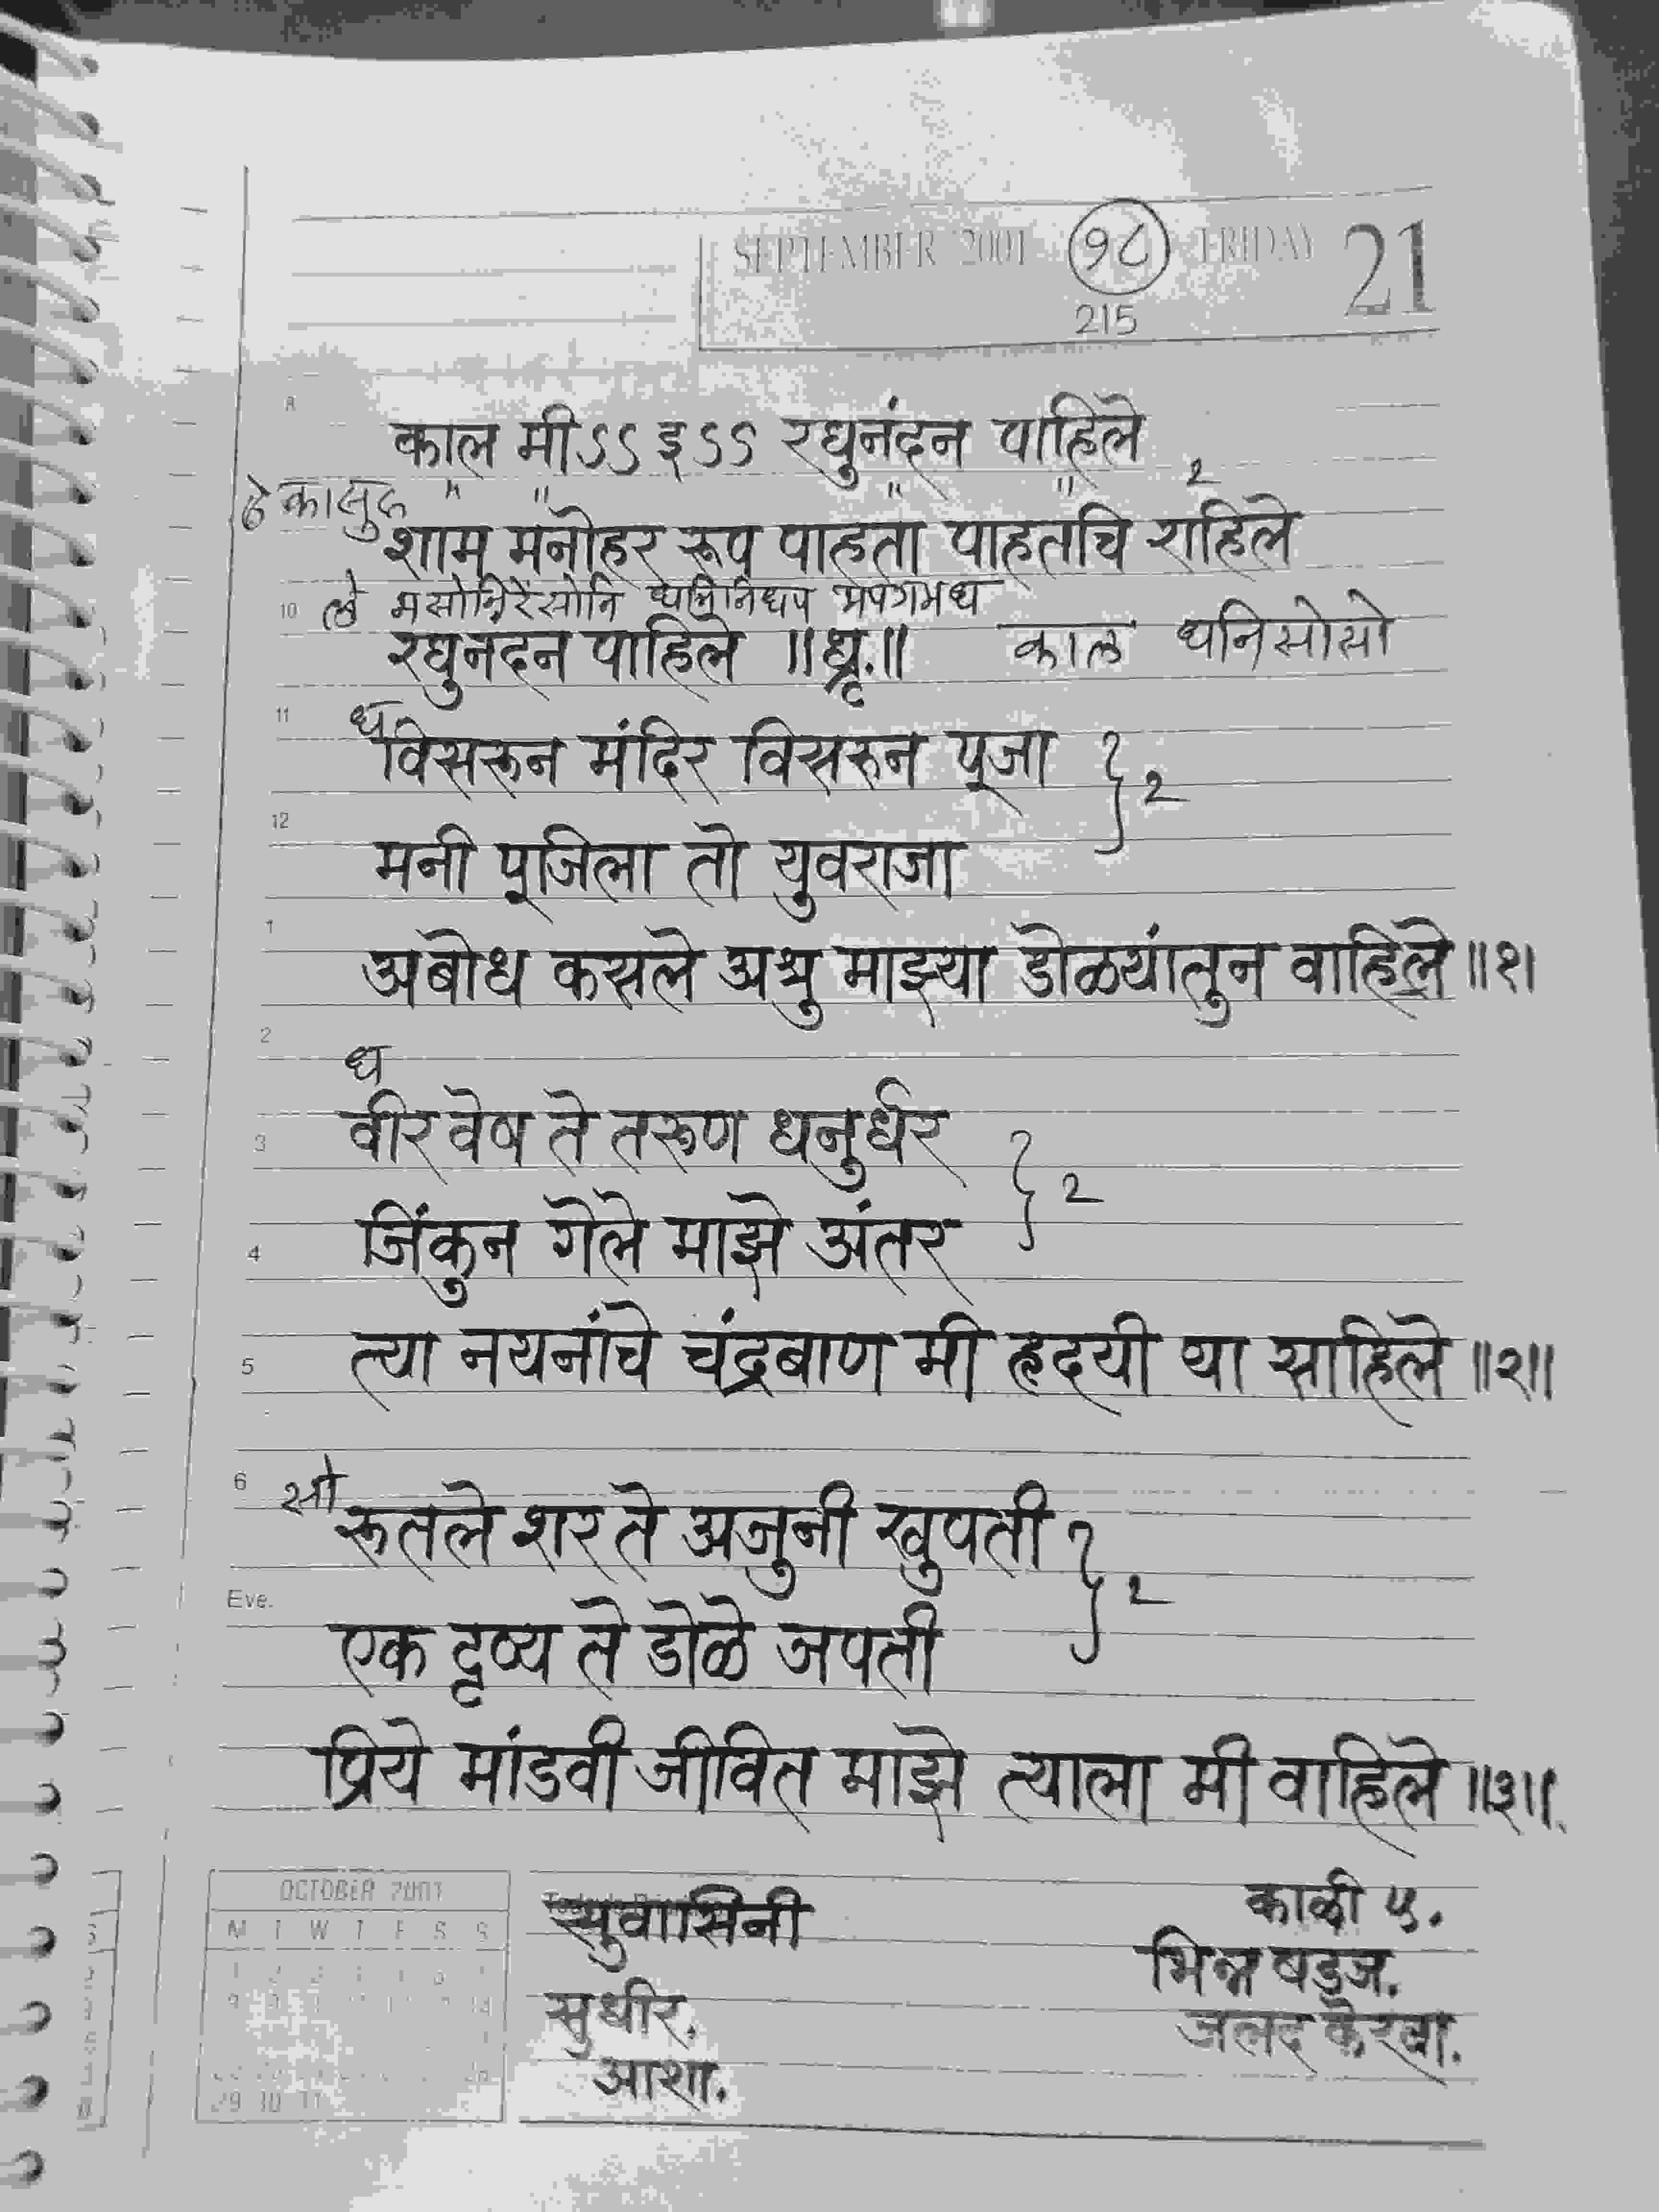 SEPTEMBER 2001 १८ FRIDAY 21
215
8
काल मीऽऽ इऽऽ रघुनंदन पाहिले
ठेकासुद्ध " " " " 2
शाम मनोहर रूप पाहता पाहतचि राहिले
10 ले
रघुनदन पाहिले ॥धृ.॥ काल धनिसोसो
11 ध
विसरून मंदिर विसरुन पूजा } 2
12
मनी पूजिला तो युवराजा
1
अबोध कसले अश्रु माझ्या डोळयांतुन वाहिले ॥१।
2
ध
3 वीर वेष ते तरूण धनुर्धर } 2
4 जिंकुन गेले माझे अंतर
5 त्या नयनांचे चंद्रबाण मी हृदयी या साहिले ॥२॥
6 सो
रूतले शर ते अजुनी खुपती } 2
Eve.
एक दृष्य ते डोळे जपती
प्रिये मांडवी जीवित माझे त्याला मी वाहिले ॥३॥
OCTOBER 2001
M T W T F S S
29 30 31
सुवासिनी काळी ५.
सुधीर. भिन्न षड्ज.
आशा. जलद केरवा.